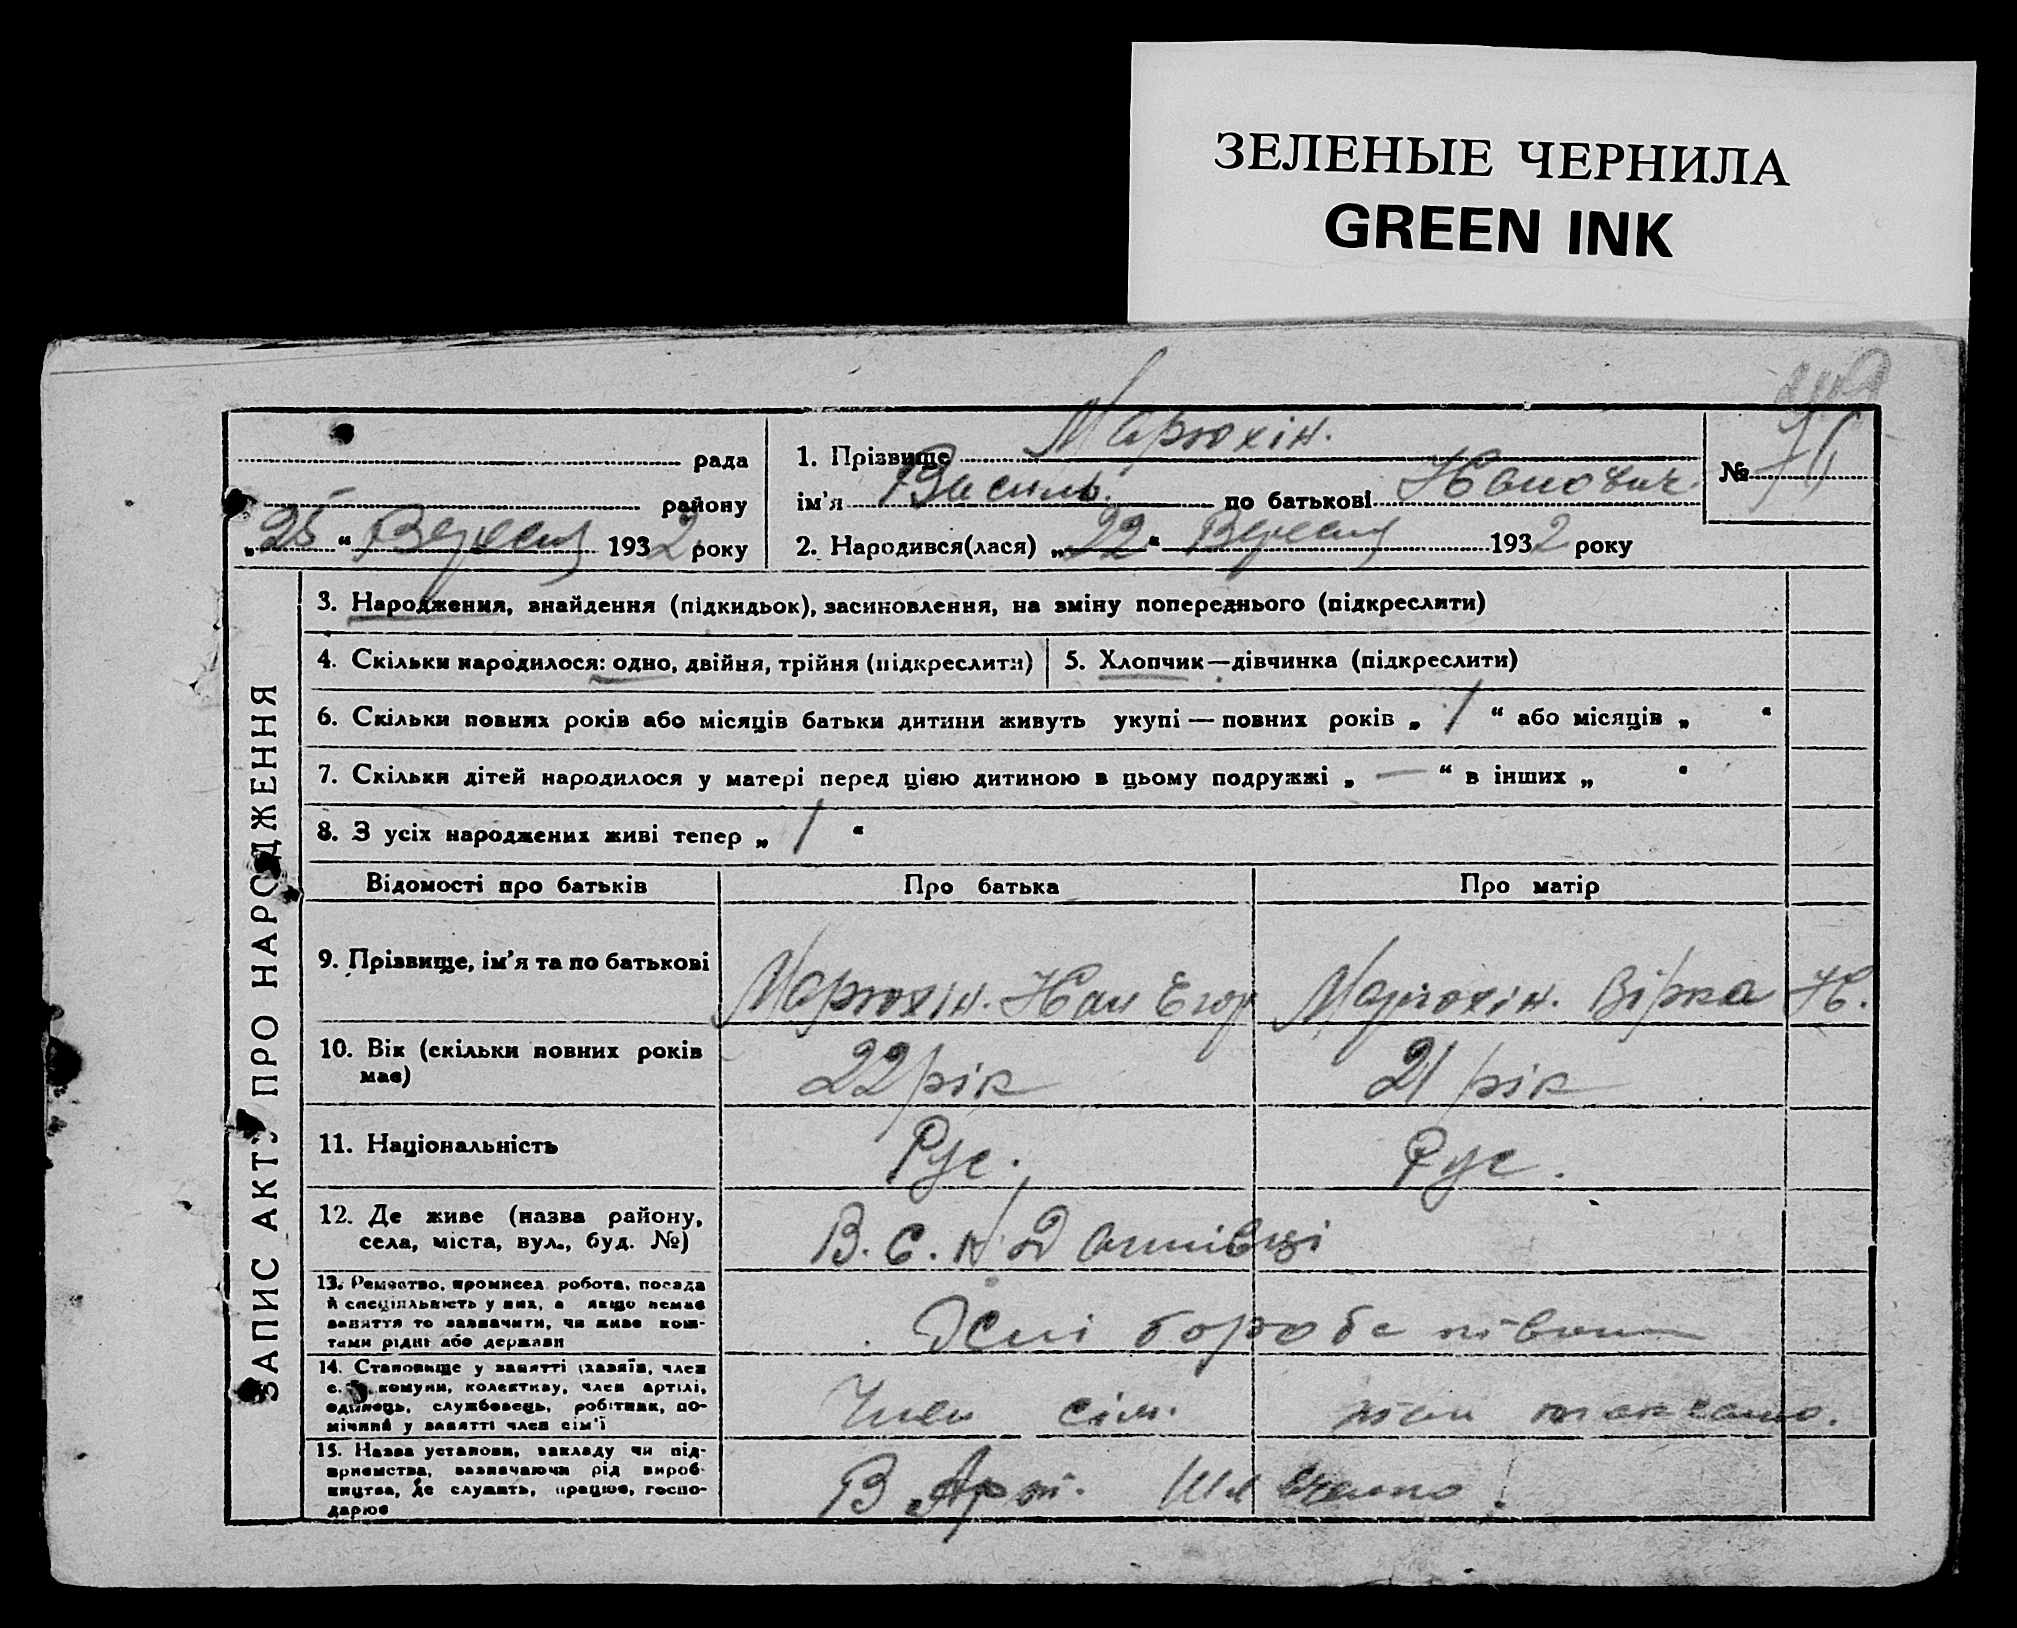 ЗЕЛЕНЫЕ ЧЕРНИЛА
GREEN INK
рада
району
„25“ Вересня 1932 року
1. Прізвище Марюхін.
ім'я Василь. по батькові Іванович.
2. Народився(лася) „22“ Вересня 1932 року
№ 71
ЗАПИС АКТУ ПРО НАРОДЖЕННЯ
3. Народження, знайдення (підкидьок), засиновлення, на зміну попереднього (підкреслити)
4. Скільки народилося: одно, двійня, трійня (підкреслити)
5. Хлопчик—дівчинка (підкреслити)
6. Скільки повних років або місяців батьки дитини живуть укупі — повних років „ 1 “ або місяців „ “
7. Скільки дітей народилося у матері перед цією дитиною в цьому подружжі „ — “ в інших „ “
8. З усіх народжених живі тепер „ 1 “
Відомості про батьків
Про батька
Про матір
9. Прізвище, ім'я та по батькові
Марюхін. Іван Егор
Марюхін. Вірка І.
10. Вік (скільки повних років
має)
22 рік
21 рік
11. Національність
Рус.
Рус.
12. Де живе (назва району,
села, міста, вул., буд. №)
В. С.
13. Ремество, промисел, робота, посада
й спеціяльність у них, а якщо немає
заняття то зазначити, чи живе кош-
тами рідні або держави
14. Становище у занятті (хазяїн, член
с. комуни, колективу, член артілі,
одинець, службовець, робітник, по-
мічний у занятті член сім'ї
Член сім. так само.
15. Назва установи, закладу чи під-
приємства, зазначаючи рід вироб-
ництва, де служить, працює, госпо-
дарює
В Арт.